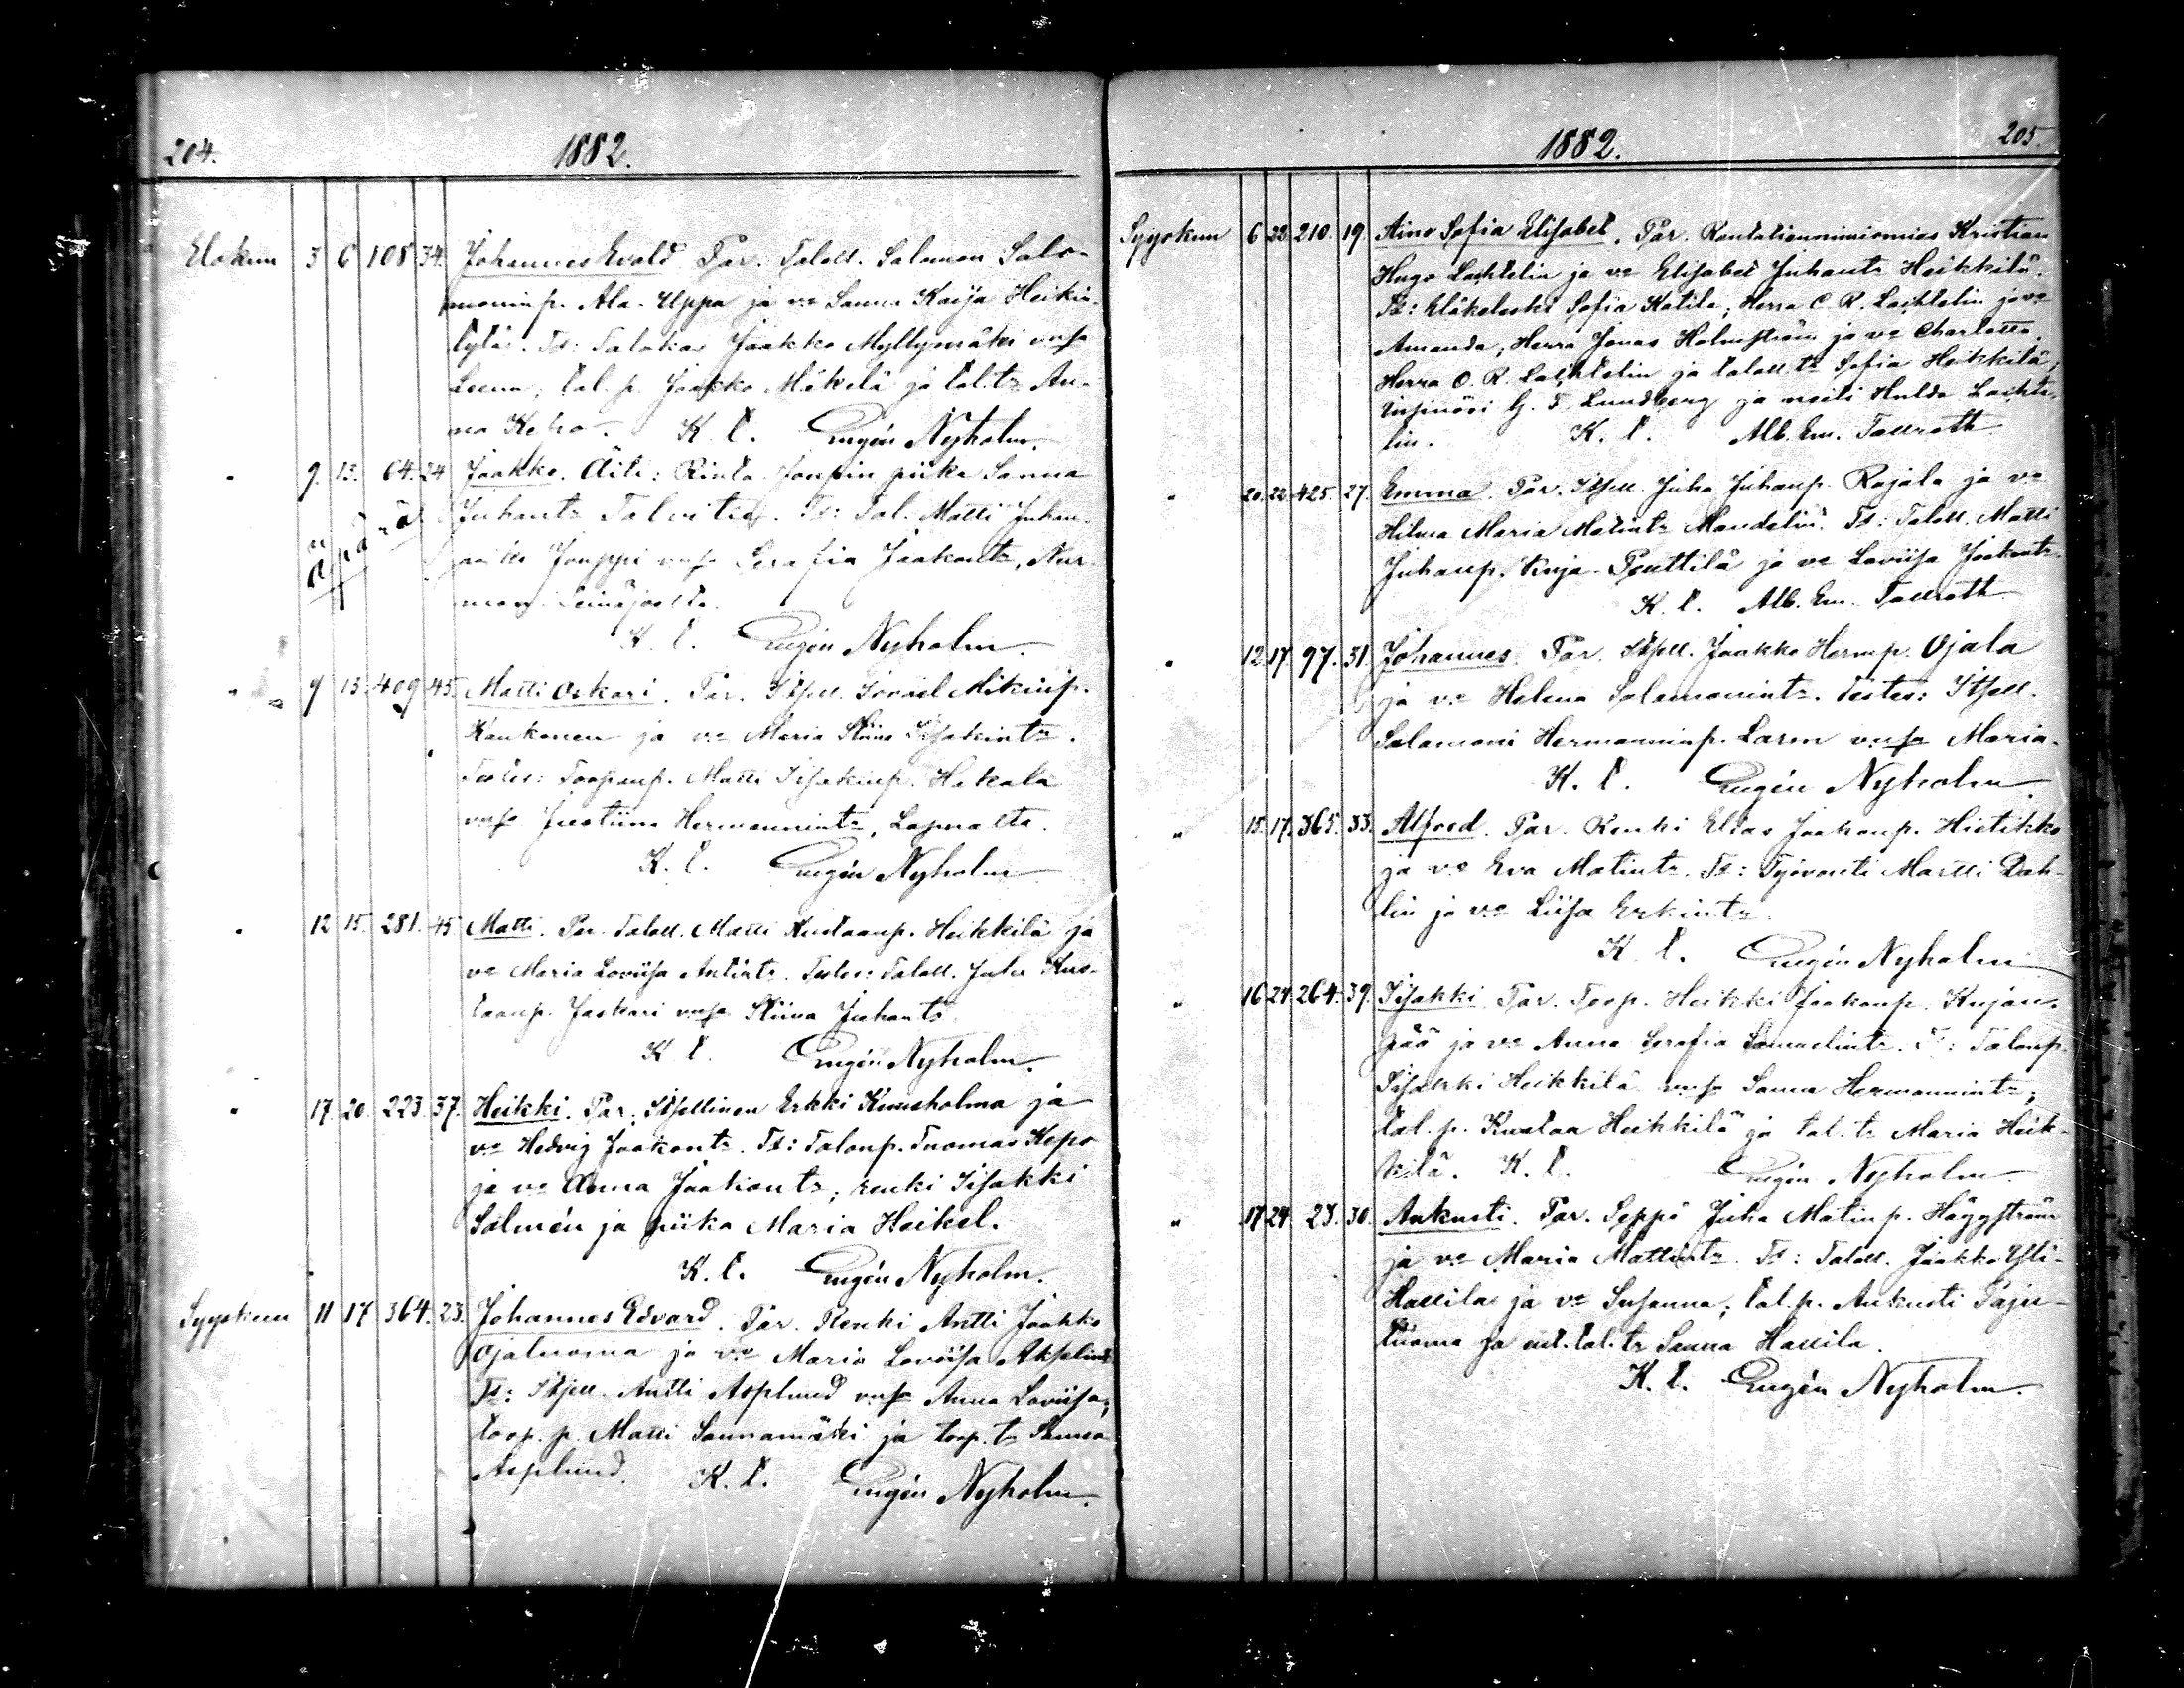 204.
1882.
Elokuu 3 6 108 34. Johannes Evald Par. Taloll. Salomon Salo-
moninp. Ala-Uppa ja vo Sanna Kaija Heikin-
tytär. Td: Talokas Jaakko Myllymäki vmsa
Leena, tal. p. Jaakko Mäkelä ja tal. tr An-
na Kepo. K. t. Eugén Nyholm.
" 9. 13. 64. 24 Jaakko. Äiti: Rinta-Joupin piika Sanna
Juhantr Talvitie. Td: Tal. Matti Juhan-
Jouppi vmsa Serafia Jaakontr, Nur-
mon Seinäjoelta.
Äpärä
K. t. Eugén Nyholm.
" 9 13 409 45. Matti Oskari. Par. Itsell. Israel Mikinp.
Kaukonen ja vo Maria Stiina Iisakintr.
Testes: Toopanp. Matti Iisakinp. Hakala
vmsa Justiina Hermannintr, Lapualta.
K. t. Eugén Nyholm
" 12 15. 281. 45 Matti. Par. Taloll. Matti Kustaanp. Heikkilä ja
vo Maria Loviisa Antintr. Testes: Taloll. Juha Kus-
taanp. Jaskari vmsa Stiina Juhantr
K. t. Eugén Nyholm.
" 17. 20. 223. 37. Heikki. Par. Itsellinen Erkki Kuusholma ja
vo Hedvig Jaakontr. Td: Talonp. Tuomas Kepo
ja vo Anna Jaakontr; renki Iisakki
Salmén ja piika Maria Heikel.
K. t. Eugén Nyholm.
Syyskuu 11 17 364. 23. Johannes Edvard. Par. Renki Antti Jaakko
Ojaluoma ja vo Maria Loviisa Akselintr
Td: Itsell. Antti Asplund vmsa Anna Loviisa;
toop. p. Matti Sannamäki ja toop. tr Sanna
Asplund. K. t. Eugén Nyholm.
1882.
205.
Syyskuu 6 22 210. 19 Aino Sofia Elisabet. Par. Rautatieninsinöri Kristian
Hugo Lachtelin ja vo Elisabet Juhantr Heikkilä.
Td: Eläkeleski Sofia Katila; Herra C. R. Lachtelin ja vo
Amanda; Herra Jonas Holmström ja vo Charlotta;
Herra O. R. Lachtelin ja taloll. tr Sofia Heikkilä;
Insinööri G. F. Lundberg ja neiti Hulda Lachte-
lin. K. t. Alb. Em. Tallroth
" 20. 22 425. 27. Emma. Par. Itsell. Juha Juhanp. Rajala ja vo
Hilma Maria Matintr Mandelin. Td: Taloll. Matti
Juhanp. Varja-Penttilä ja vo Loviisa Jaakontr
K. t. Alb. Em. Tallroth
" 12 17 97. 31. Johannes. Par. Itsell. Jaakko Hermp. Ojala
ja vo Helena Salomonintr. Testes: Itsell.
Salomoni Hermanninp. Laren vmsa Maria.
K. t. Eugén Nyholm.
" 15. 17. 365. 33. Alfred. Par. Renki Elias Jaakonp. Hietikko
ja vo Eva Matintr. Td: Työvouti Martti Dah-
lin ja vo Liisa Erkintr
K. t. Eugén Nyholm
" 16 24. 264. 39. Iisakki. Par. Toop. Heikki Jaakonp. Kujan-
pää ja vo Anna Serafia Samuelintr. Td: Talonp.
Iisakki Heikkilä vmsa Sanna Hermannintr;
tal. p. Kustaa Heikkilä ja tal. tr Maria Heik-
kilä. K. t. Eugén Nyholm
" 17 24 23. 30. Aukusti. Par. Seppä Juha Matinp. Häggström
ja vo Maria Mattintr. Td: Taloll. Jaakko Yli-
Hallila ja vo Susanna; tal. p. Aukusti Paju-
luoma ja ent. tal. tr Sanna Hallila.
K. t. Eugén Nyholm.